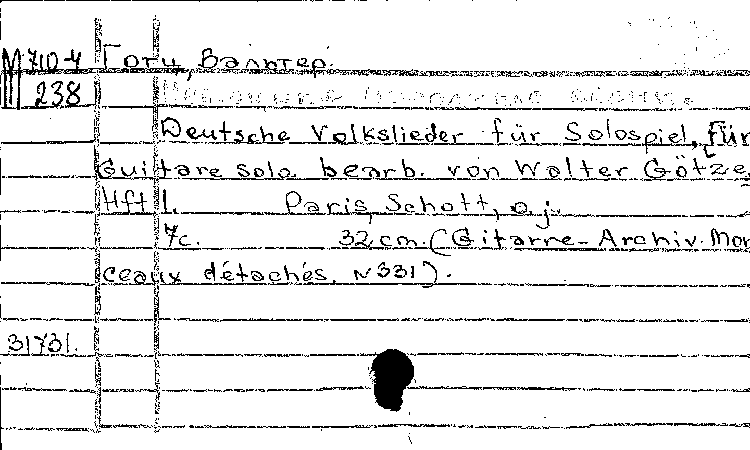 М 710-4 Готц, Вальтер.
III 238
Deutsche Volkslieder für Solospiel, für
Guitare solo bearb. von Walter Götze,
Hft 1. Paris, Schott, o. j.
7с. 32 cm. (Gitarre-Archiv. Mor
ceaux détachés. N 331).
31731.